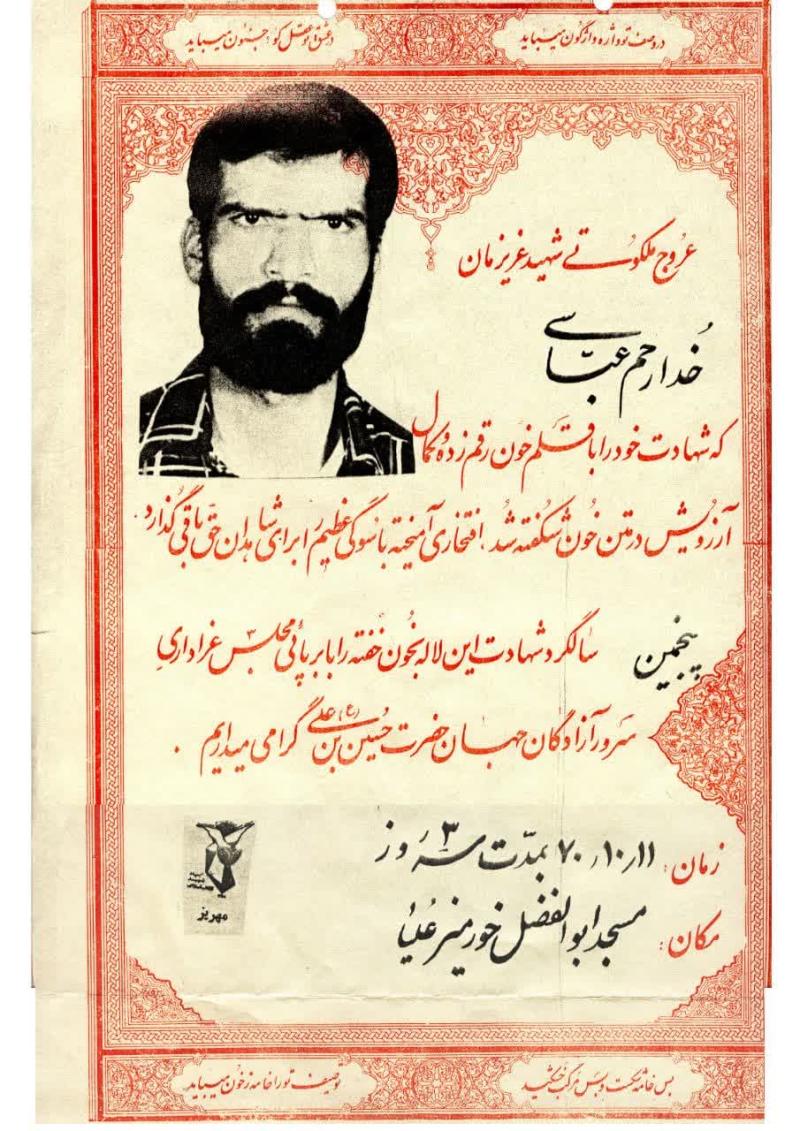 در وصف تو واژه واژگون میباید
در عشق تو عقل کو؟ جنون میباید
عروج ملکوتی شهید عزیزمان
خدارحم عباسی
که شهادت خود را با قلم خون رقم زد و کمال
آرزویش در متن خون شکفته شد، افتخاری آمیخته با سوگی عظیم را برای شاهدان حق باقی گذارد.
پنجمین سالگرد شهادت این لاله بخون خفته را با برپائی مجلس عزاداری
سرور آزادگان جهان حضرت حسین بن علی (ع) گرامی میداریم.
زمان: ۷۰٫۱۰٫۱۱ بمدّت ۳ روز
مکان: مسجد ابوالفضل خورمیز عُلیا
مهریز
بس خامه شکست و بس مرکب خشکید
توصیف تو را خامه ز خون میباید